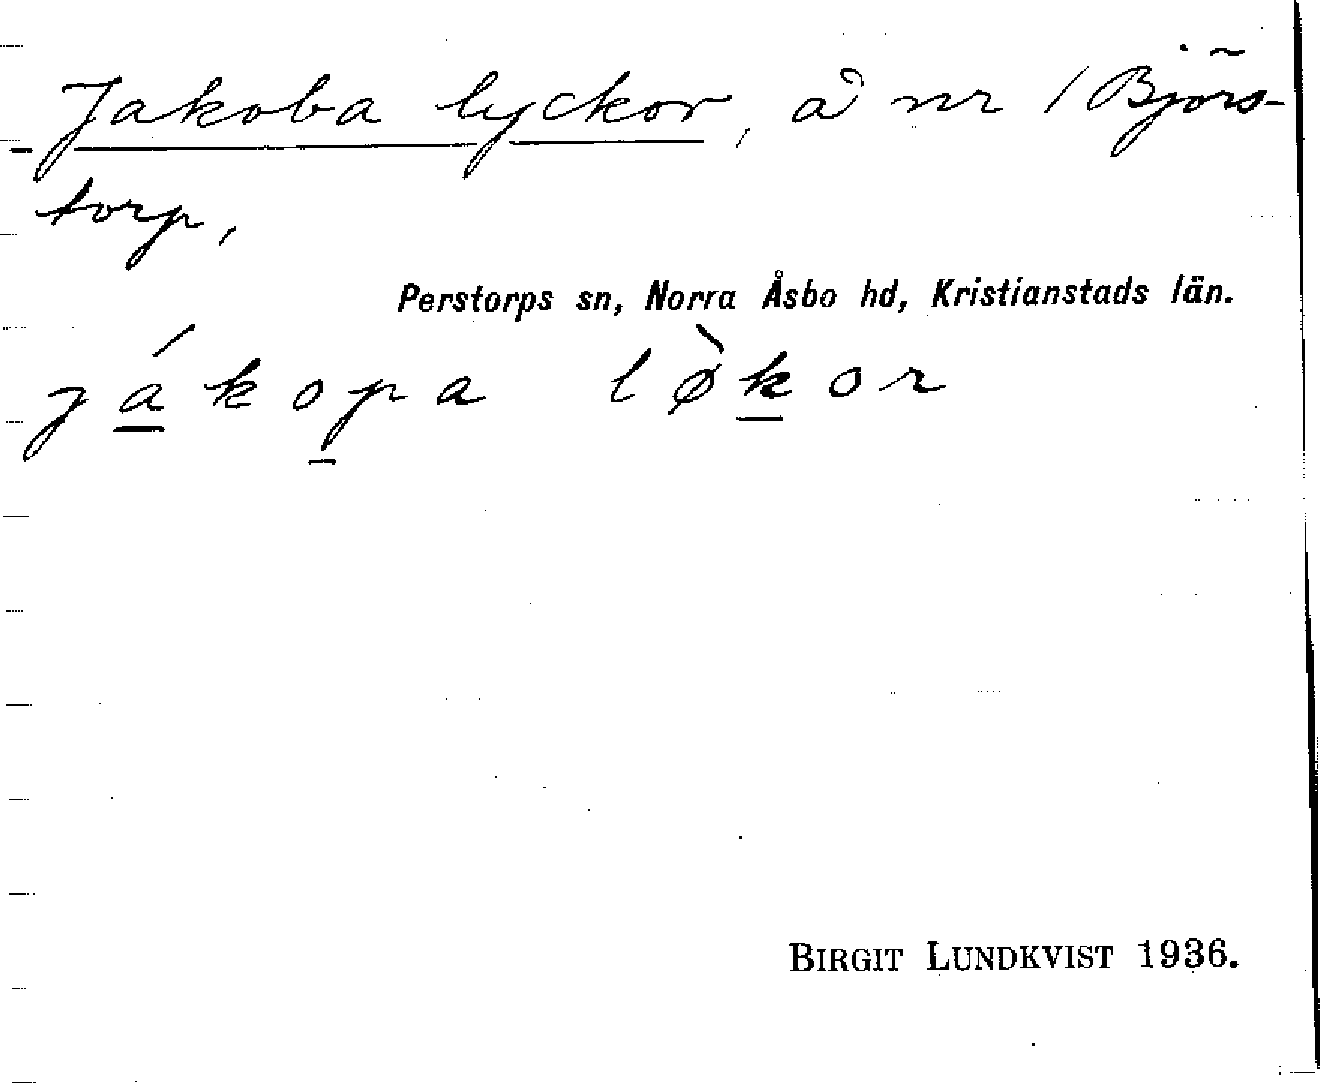 Jakoba lyckor, å nr 1 Björs-
torp,
Perstorps sn, Norra Åsbo hd, Kristianstads län.
já̱kop̱a lø̀ḵor
BIRGIT LUNDKVIST 1936.